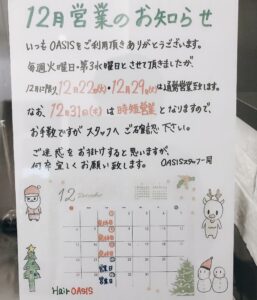 12月営業のお知らせ
いつもOASISをご利用頂きありがとうございます。
毎週火曜日・第3水曜日とさせて頂きましたが、
12月に限り、12月22(火)・12月29(火)は通常営業致します。
なお、12月31(木)は時短営業となりますので、
お手数ですがスタッフへご確認下さい。
ご迷惑をお掛けすると思いますが、
何卒宜しくお願い致します。 OASISスタッフ一同
12 December
Hair OASIS